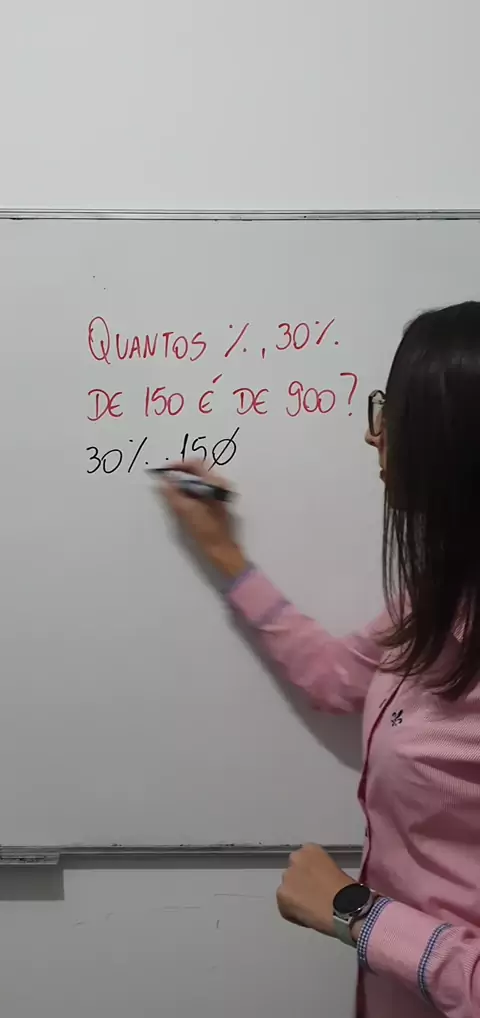 QUANTOS %, 30%
DE 150 É DE 900?
30% . 150